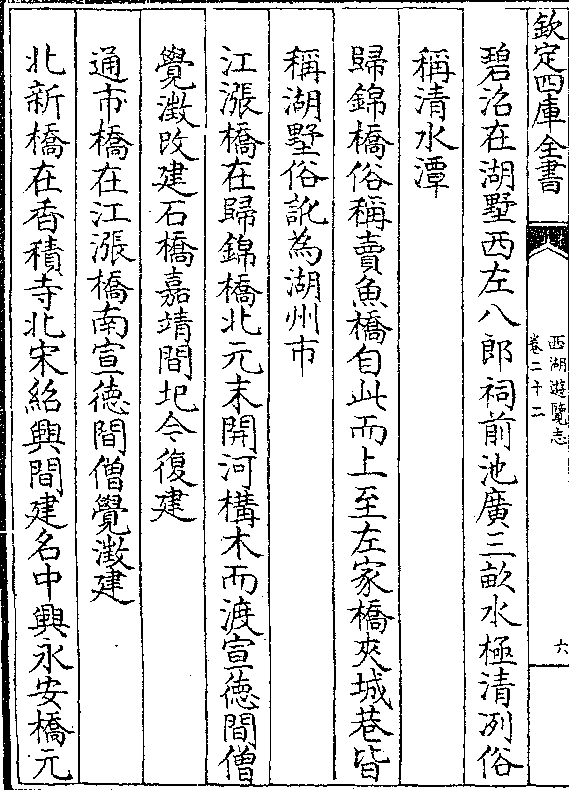 欽定四庫全書
西湖遊覽志
卷二十二
六
碧沼在湖墅西左八郎祠前池廣三畝水極清冽俗
稱清水潭
歸錦橋俗稱賣魚橋自此而上至左家橋夾城巷皆
稱湖墅俗訛為湖州市
江漲橋在歸錦橋北元末開河構木而渡宣徳間僧
覺澂改建石橋嘉靖間圮今復建
通市橋在江漲橋南宣徳間僧覺澂建
北新橋在香積寺北宋紹興間建名中興永安橋元